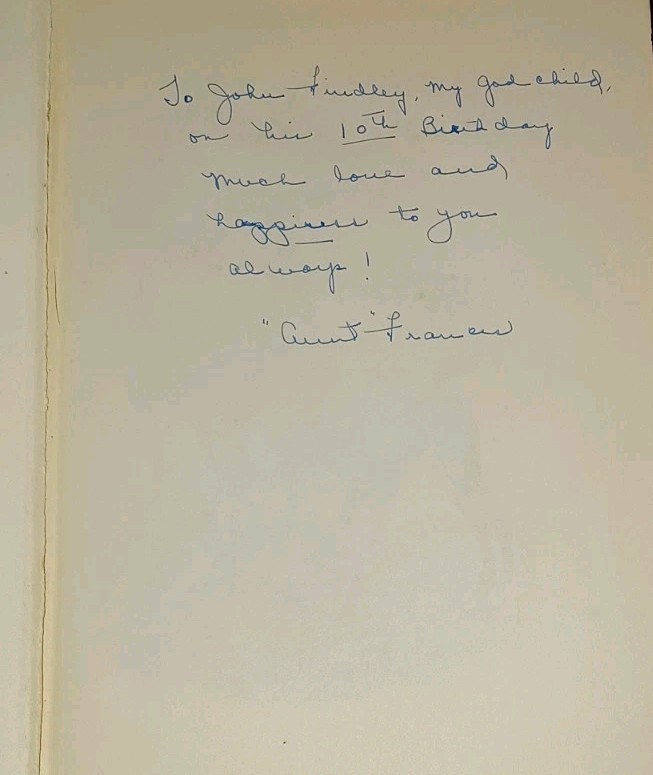 To John Findley, my god child,
on his 10th Birthday
much love and
happiness to you
always!
"Aunt" Frances